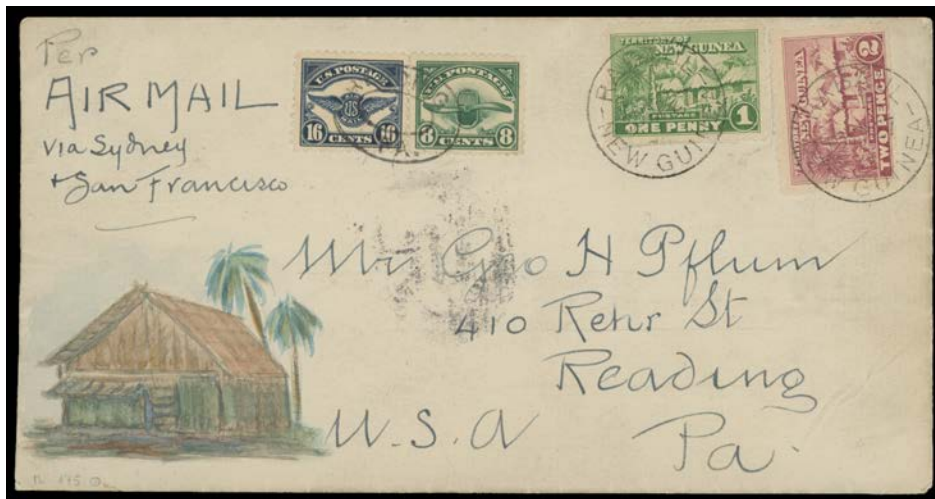 Per
AIR MAIL
via Sydney
+ San Francisco
U.S. POSTAGE
US
MAIL
16 CENTS 16
U.S. POSTAGE
8 CENTS 8
TERRITORY OF
NEW GUINEA
POSTAGE
ONE PENNY 1
NEW GUINEA
TWO PENCE 2
NEW GUINEA
Mr Geo H Pflum
410 Rehr St
Reading
U.S.A Pa.